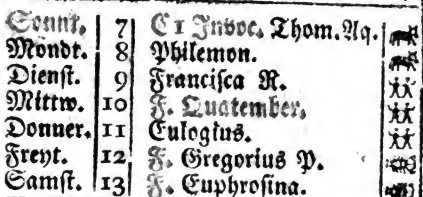 Sonnt. 7 C 1 Invoc. Thom. Aq.
Mondt. 8 Philemon.
Dienst. 9 Francisca R.
Mittw. 10 F. Quatember.
Donner. 11 Eulogius.
Freyt. 12 F. Gregorius P.
Samst. 13 F. Euphrosina.